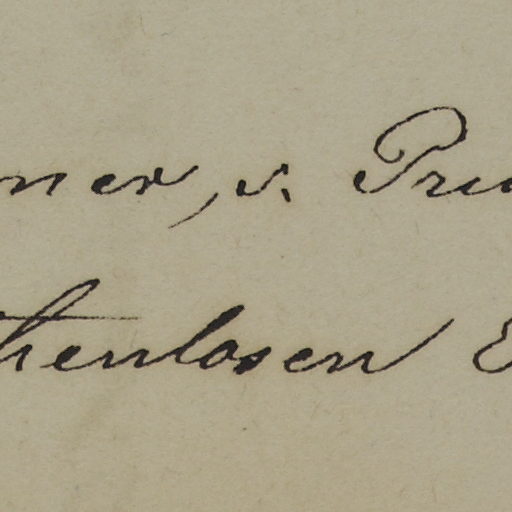 ner, v. Pru
thenlosen E